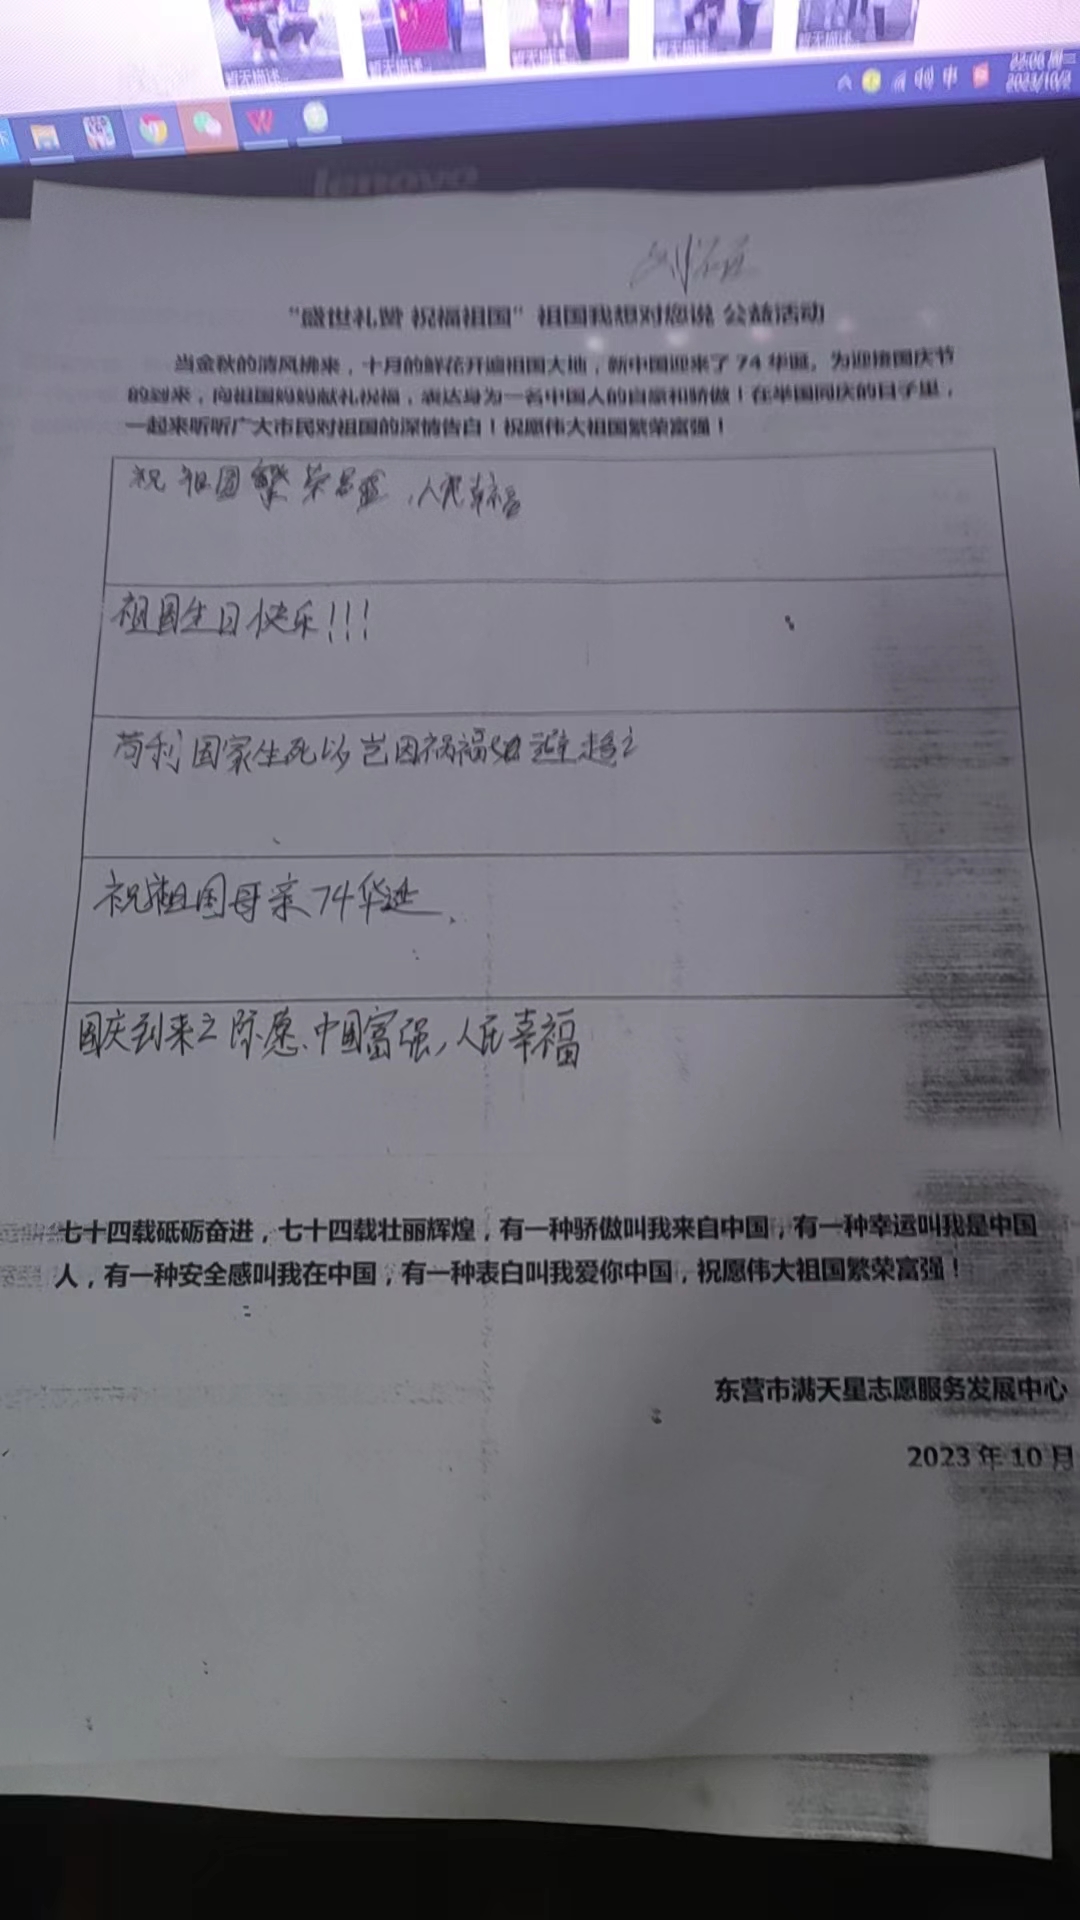 暂无描述...
暂无描述...
暂无描述...
暂无描述...
暂无描述...
lenovo
“盛世礼赞 祝福祖国”祖国我想对您说 公益活动
当金秋的清风拂来，十月的鲜花开遍祖国大地，新中国迎来了 74 华诞。为迎接国庆节
的到来，向祖国妈妈献礼祝福，表达身为一名中国人的自豪和骄傲！在举国同庆的日子里，
一起来听听广大市民对祖国的深情告白！祝愿伟大祖国繁荣富强！
祝祖国繁荣昌盛，人民幸福
祖国生日快乐!!!
苟利国家生死以岂因祸福避趋之
祝祖国母亲74华诞.
国庆到来之际愿.中国富强,人民幸福
七十四载砥砺奋进，七十四载壮丽辉煌，有一种骄傲叫我来自中国，有一种幸运叫我是中国
人，有一种安全感叫我在中国，有一种表白叫我爱你中国，祝愿伟大祖国繁荣富强！
东营市满天星志愿服务发展中心
2023 年 10 月